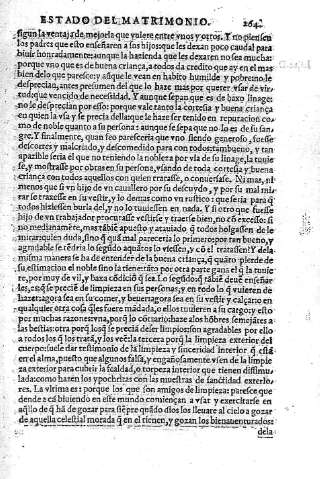 ESTADO DEL MATRIMONIO. 264
sigun la ventaja de mejoria que vuiere entre vnos y otros. Y no piensen
los padres que esto enseñaren a sus hijos: que les dexan poco caudal para
biuir honradamente: aunque la hazienda que les dexaren no sea mucha:
porque vno que es de buena criança, a todos da credito que ay en el mas
bien delo que paresce: y aũque le vean en habito humilde y pobre: no le
desprecian, antes presumen del que lo haze mas por querer vsar de vir-
tud: que vencido de necesidad. Y aunque sepan que es de baxo linage:
no le desprecian por esso: porque vale tanto la cortesia y buena criança
en quien la vsa y se precia della: que le haze ser tenido en reputacion co-
mo de noble quanto a su persona: aunque se sepa que no lo es de su san-
gre. Y finalmente, quan feo pareceria que vno siendo generoso, fuesse
descortes y malcriado, y descomedido para con todos: tambueno, y tan
aparible seria el que no teniendo la nobleza por via de su linage, la tuuie
se, y mostrasse por obras en su persona, vsando de toda cortesia y buena
criança con todos aquellos con quien tratasse, o conuersasse. Ni mas, ni
menos que si vn hijo de vn cauallero por su descuydo, y por su mal mi-
rar se traxesse en su vestir, y lo demas como vn rustico: que seria para q̃
todos hiziessen burla del, y no lo tuuiessen en nada. Y si otro que fuesse
hijo de vn trabajador procurasse vestirse y traerse bien, no cõ excesso: si
no medianamẽte, mas tãbiẽ apuesto y atauiado q̃ todos holgassen de le
mirar: quien duda, sino q̃ quã mal pareceria lo primero: por tan bueno, y
agradable se tẽdria lo segũdo aquãtos lo viessen, y cõ el tratassen? Y de la
misma manera se ha de entender de la buena criança, q̃ quãto pierde de
su estimacion el noble sino la tiene: tãto por otra parte gana el q̃ la tuuie
re, por muy de vil, y baxa cõdiciõ q̃ sea. Lo segũdo: q̃ tãbiẽ deuẽ enseñar
les, es: q̃ se preciẽ de limpieza en sus personas, y en todo lo q̃ vuieren de
hazer: agora sea en su comer, y beuer: agora sea en su vestir y calçar: o en
qualquier otra cosa q̃ les fuere mãdada, o ellos tuuieren a su cargo: y esto
por muchas razones: vna, porq̃ lo cõtrario: haze a los hõbres semejãtes a
las bestias: otra porq̃ los q̃ se preciã de ser limpios: son agradables por ello
a todos los q̃ los tratã, y los veẽ: la tercera porq̃ la limpieza exterior del
cuerpo: suele dar testimonio de la limpieza y sinceridad interior q̃ està
en el alma, puesto que algunos falsa, y engañosamente vsen de la limpie
za exterior para cubrir la fealdad, o torpeza interior que tienen dissimu
lada: como hazen los ypochritas con las muestras de sanctidad exterio-
res. La vltima es: porque los que son amigos de limpieza: paresce que
dende aca biuiendo en este mundo comiençan a vsar y exercitarse en
aq̃llo de q̃ hã de gozar para siẽpre quãdo dios los lleuare al cielo a gozar
de aquella celestial morada q̃ en el tienen, y gozan los bienauenturados:
dela